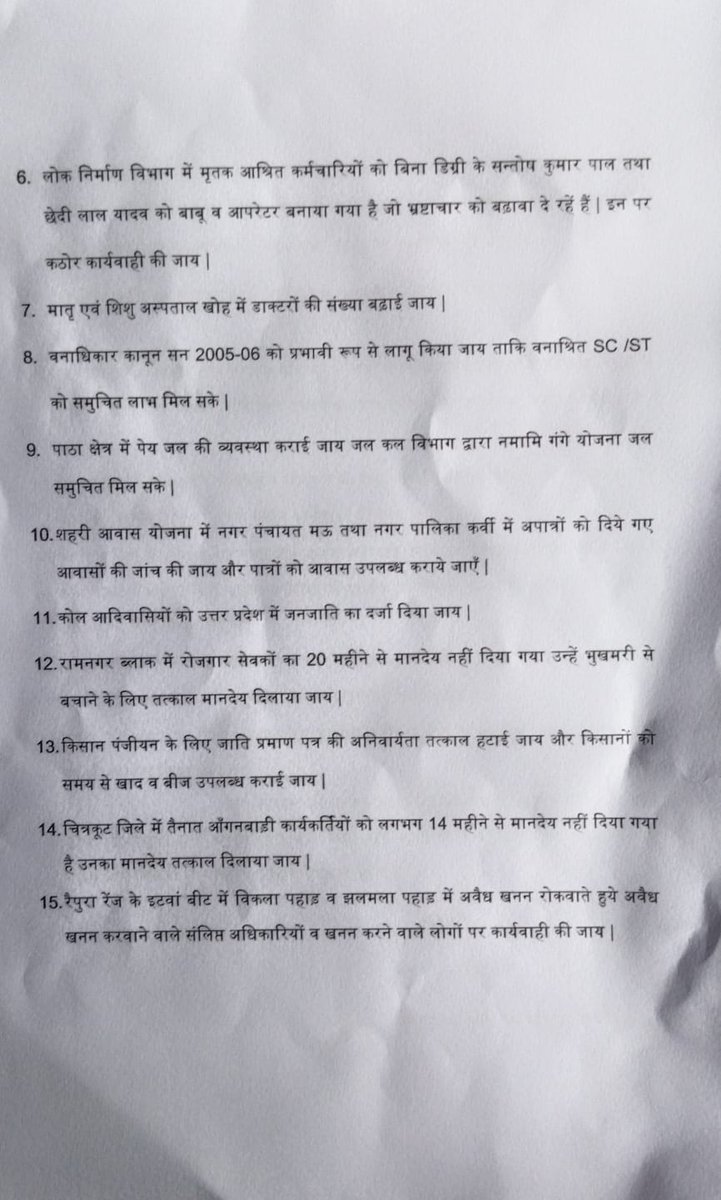 6. लोक निर्माण विभाग में मृतक आश्रित कर्मचारियों को बिना डिग्री के सन्तोष कुमार पाल तथा
छेदी लाल यादव को बाबू व आपरेटर बनाया गया है जो भ्रष्टाचार को बढ़ावा दे रहें हैं | इन पर
कठोर कार्यवाही की जाय |
7. मातृ एवं शिशु अस्पताल खोह में डाक्टरों की संख्या बढ़ाई जाय |
8. वनाधिकार कानून सन 2005-06 को प्रभावी रूप से लागू किया जाय ताकि वनाश्रित SC /ST
को समुचित लाभ मिल सके |
9. पाठा क्षेत्र में पेय जल की व्यवस्था कराई जाय जल कल विभाग द्वारा नमामि गंगे योजना जल
समुचित मिल सके |
10. शहरी आवास योजना में नगर पंचायत मऊ तथा नगर पालिका कर्वी में अपात्रों को दिये गए
आवासों की जांच की जाय और पात्रों को आवास उपलब्ध कराये जाएँ |
11. कोल आदिवासियों को उत्तर प्रदेश में जनजाति का दर्जा दिया जाय |
12. रामनगर ब्लाक में रोजगार सेवकों का 20 महीने से मानदेय नहीं दिया गया उन्हें भुखमरी से
बचाने के लिए तत्काल मानदेय दिलाया जाय |
13. किसान पंजीयन के लिए जाति प्रमाण पत्र की अनिवार्यता तत्काल हटाई जाय और किसानों को
समय से खाद व बीज उपलब्ध कराई जाय |
14. चित्रकूट जिले में तैनात आँगनबाड़ी कार्यकर्तियों को लगभग 14 महीने से मानदेय नहीं दिया गया
है उनका मानदेय तत्काल दिलाया जाय |
15. रैपुरा रेंज के इटवां बीट में विकला पहाड़ व झलमला पहाड़ में अवैध खनन रोकवाते हुये अवैध
खनन करवाने वाले संलिप्त अधिकारियों व खनन करने वाले लोगों पर कार्यवाही की जाय |